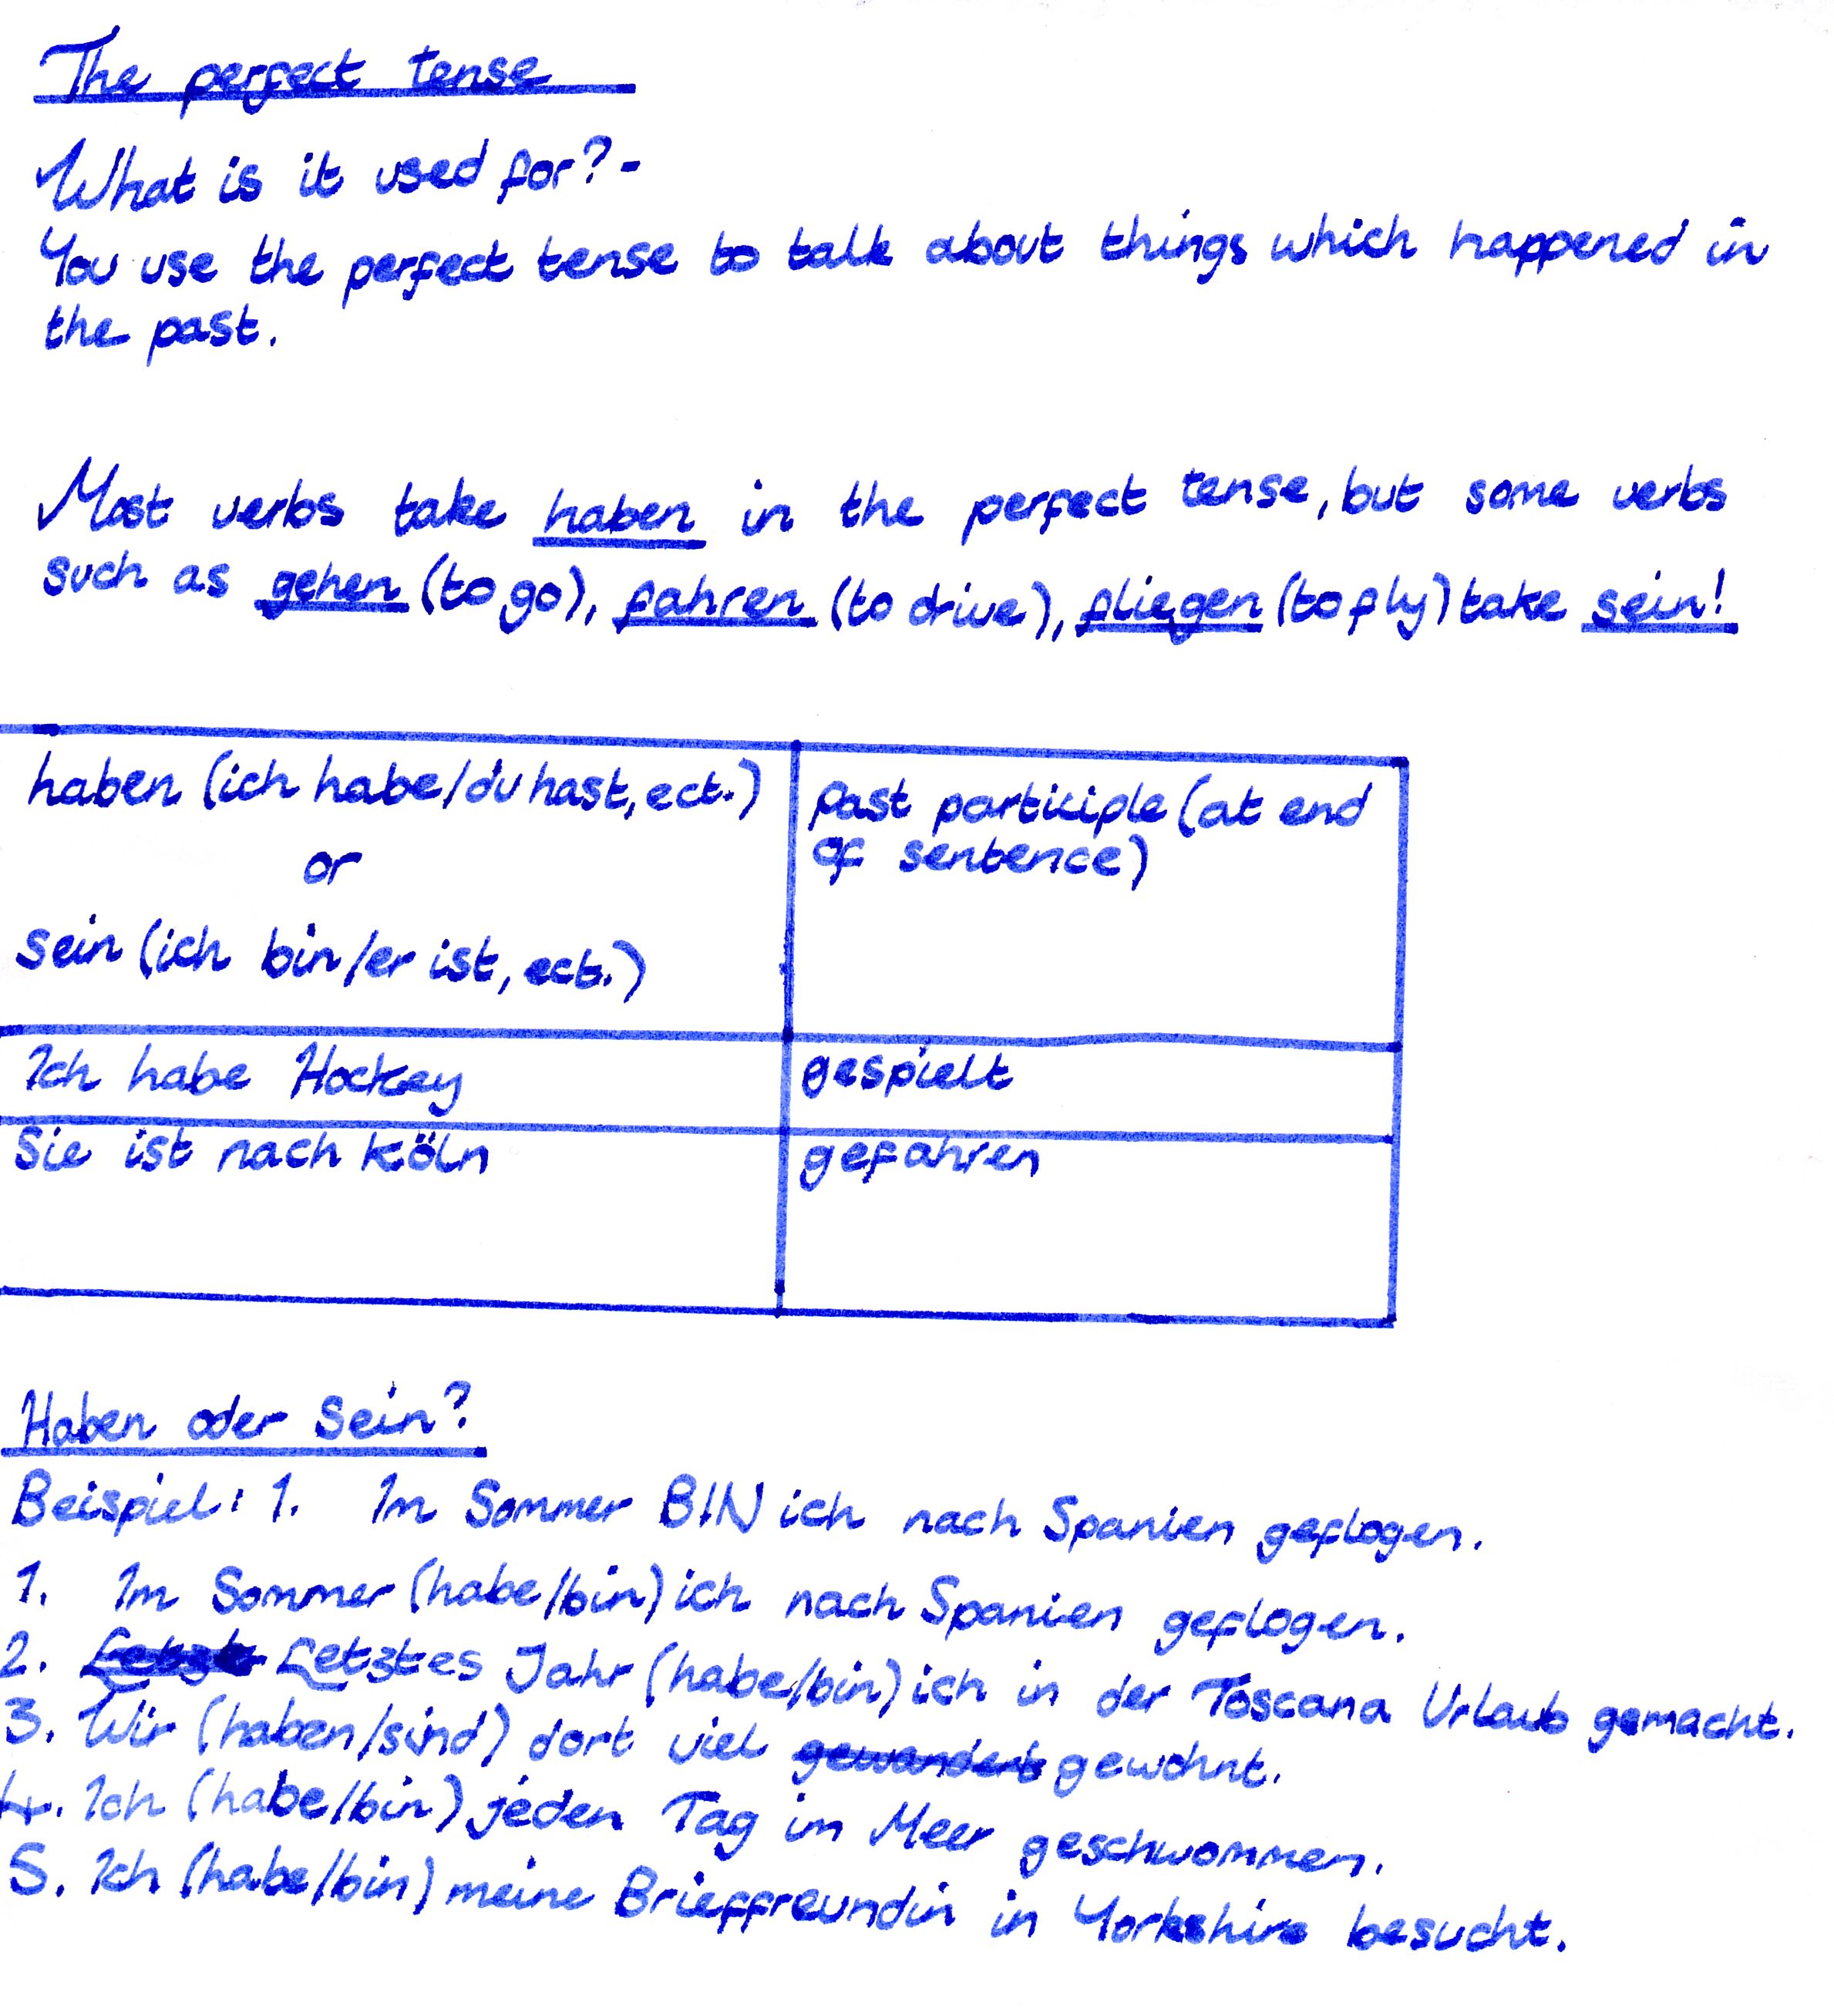 The perfect tense
What is it used for?-
You use the perfect tense to talk about things which happened in
the past.
Most verbs take haben in the perfect tense, but some verbs
such as gehen (to go), fahren (to drive), fliegen (to fly) take sein!
haben (ich habe/du hast, ect.)
or
sein (ich bin/er ist, ect.)
past participle (at end
of sentence)
Ich habe Hockey gespielt
Sie ist nach Köln gefahren
Haben oder Sein?
Beispiel: 1. Im Sommer BIN ich nach Spanien geflogen.
1. Im Sommer (habe/bin) ich nach Spanien geflogen.
2. Letztes Jahr (habe/bin) ich in der Toscana Urlaub gemacht.
3. Wir (haben/sind) dort viel gewandert gewohnt.
4. Ich (habe/bin) jeden Tag im Meer geschwommen.
5. Ich (habe/bin) meine Brieffreundin in Yorkshire besucht.